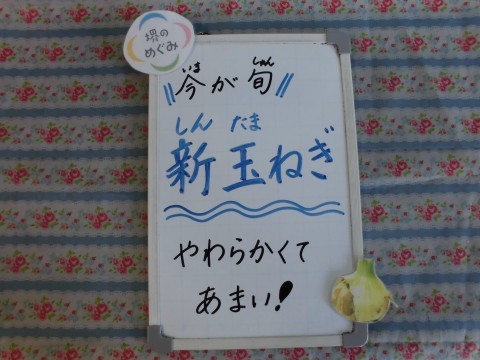 堺の
めぐみ
いま しゅん
今が旬
しん たま
新玉ねぎ
やわらかくて
あまい!